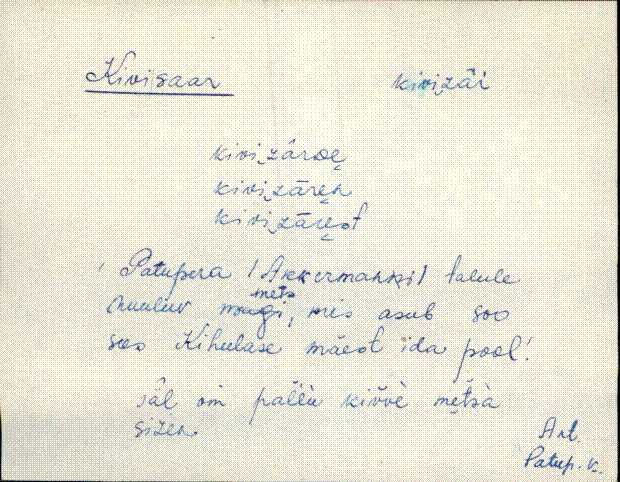 Kivisaar kivizâi
kivizârɷę
kivizāręn
kivizāręst
'Patupera (Akkermanni) talule
kuuluv mets, mis asub soo
sees Kihulase mäest ida pool'.
säl om pal'l'u kivve mętsa
sizen
Ant.
Patup. k.